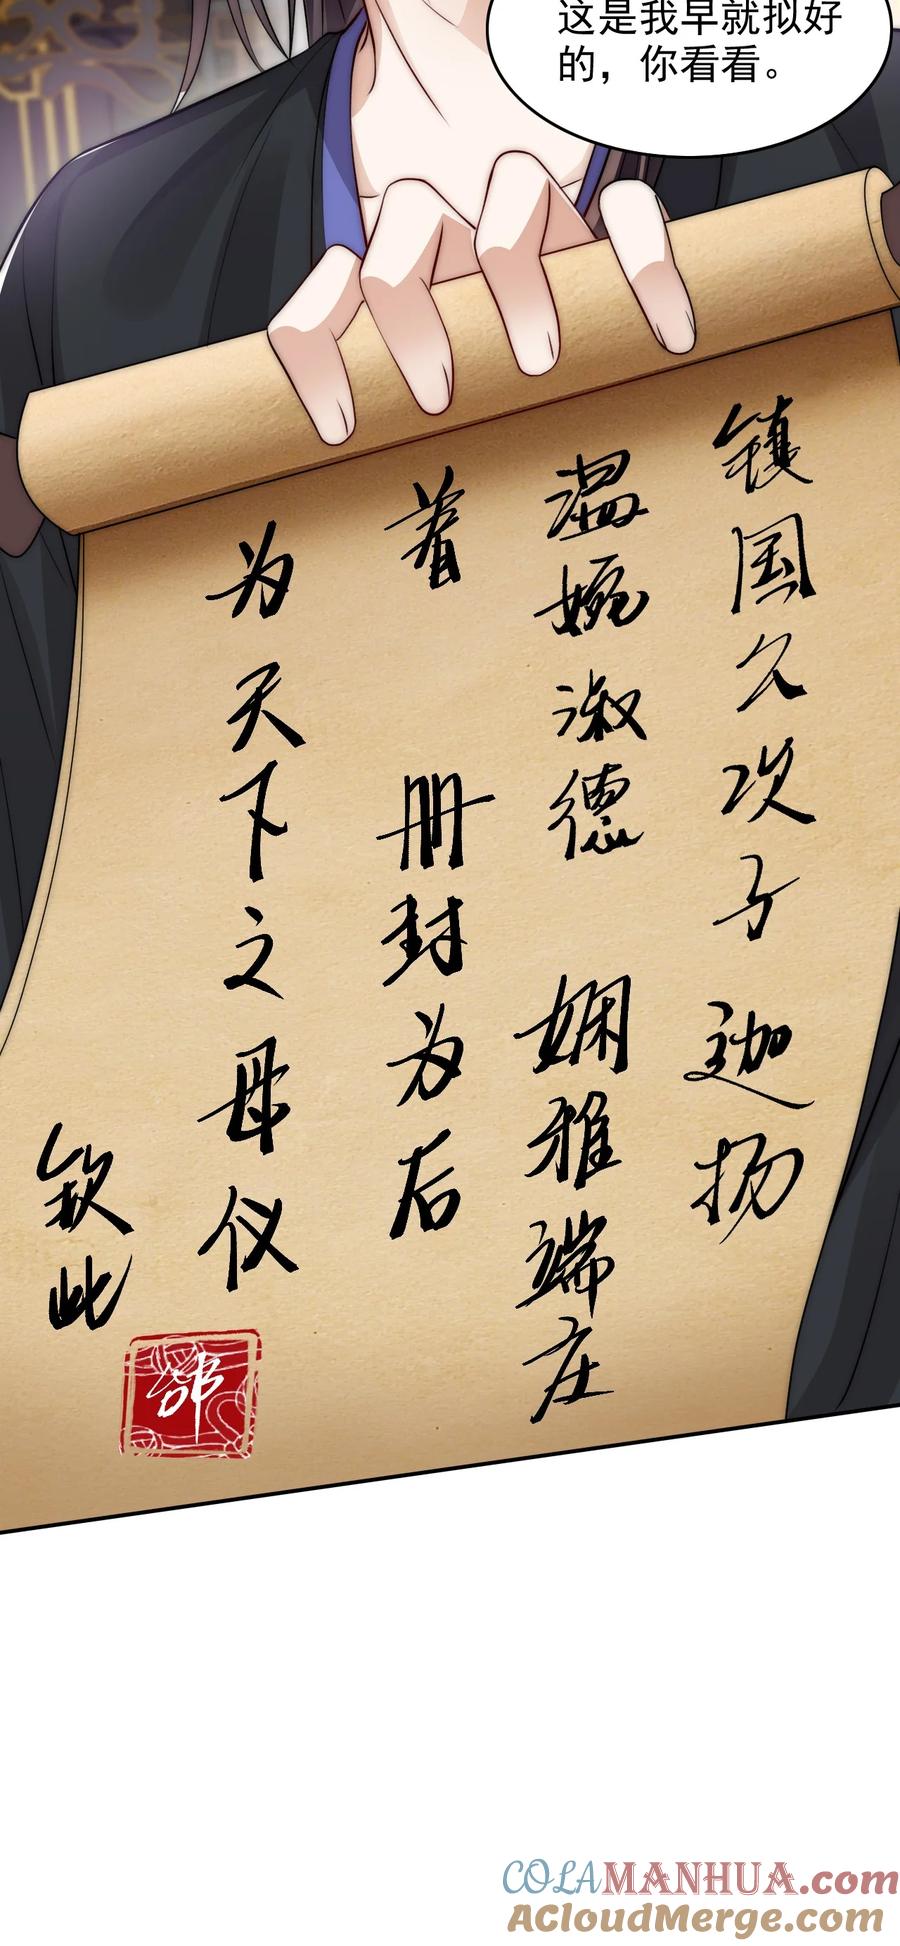 这是我早就拟好
的，你看看。
镇国久次子迦扬
温婉淑德 娴雅端庄
着 册封为后
为天下之母仪
钦此
COLAMANHUA.com
ACloudMerge.com